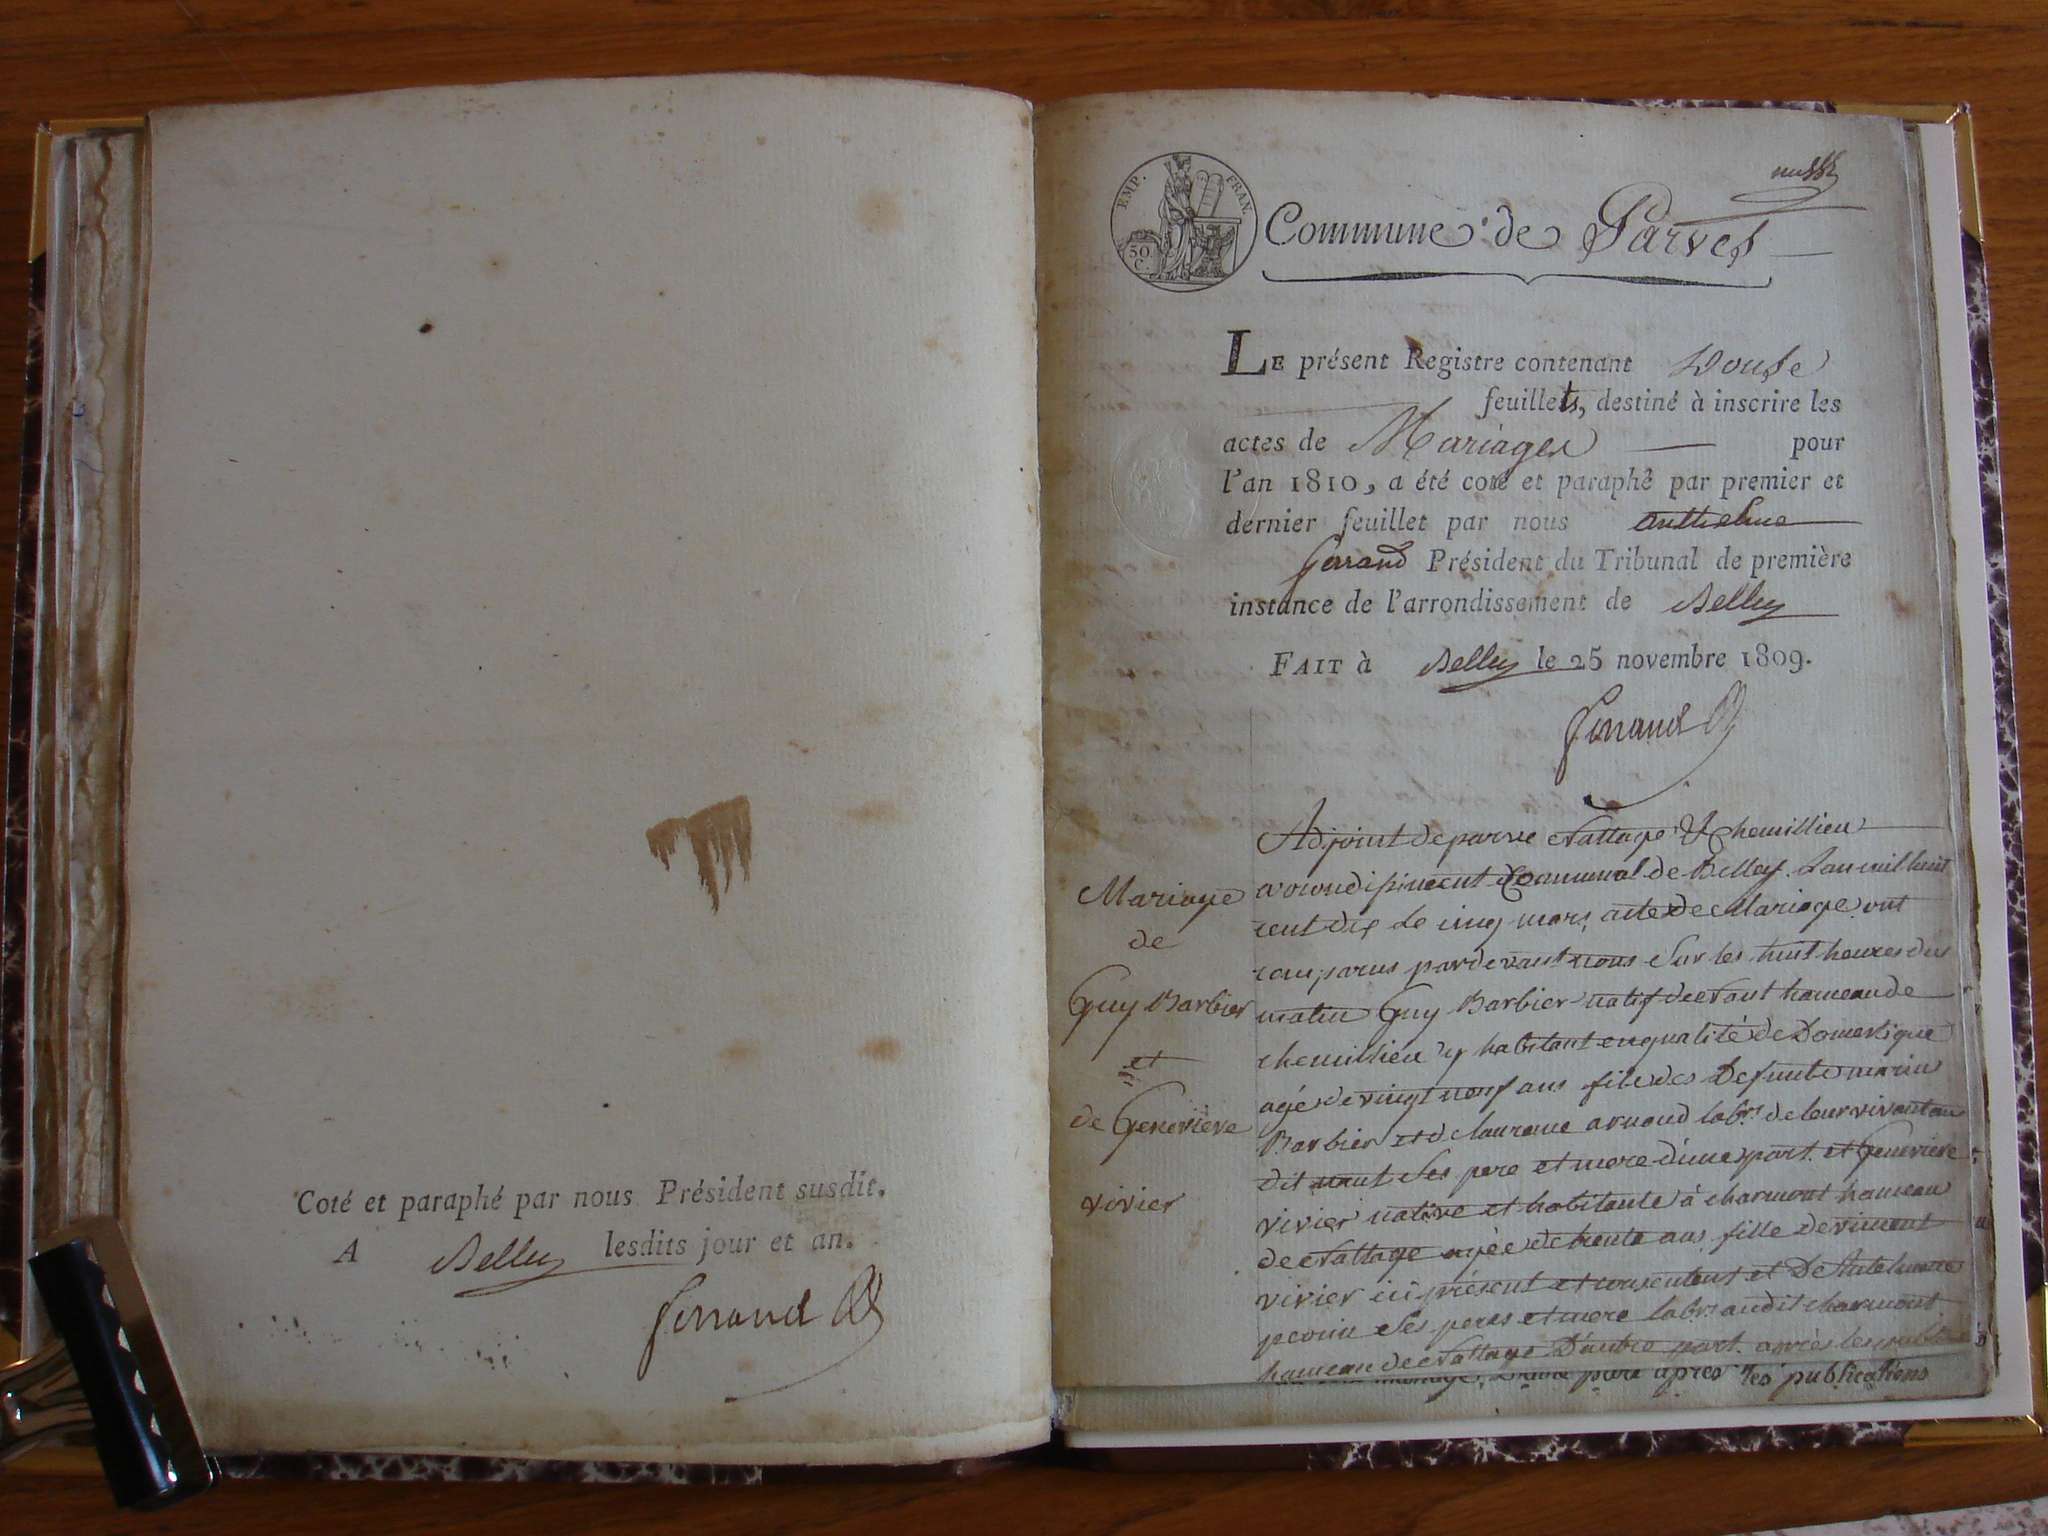 Coté et paraphé par nous Président susdit.
A Belley lesdits jour et an.
ferrand
EMP. FRAN.
50
C.
Commune de Parves
Le présent Registre contenant Douse
feuillets, destiné à inscrire les
actes de Mariages pour
l'an 1810, a été coté et paraphé par premier et
dernier feuillet par nous anthelme
ferrand Président du Tribunal de première
instance de l'arrondissement de Belley
Fait à Belley le 25 novembre 1809.
ferrand
Mariage
de
Guy Barbier
et
de Genevieve
vivier
Adjoint de parve nattage & chemillieu
arondisiment Communal de Belley. Lan mil huit
cent dix le cinq mars, acte de Mariage ont
comparus pardevant nous sur les huit heures du
matin Guy Barbier natif de nant hameau de
chemillieu y habitant en qualité de Domestique
agé de vingt neuf ans fils des defunts marin
Barbier et de laurence arnaud labrs. de leur vivant au
dit nant ses pere et mere d'une part. et Genevieve
vivier native et habitante à charmont hameau
de nattage agée de trente ans fille de vincent
vivier ici présent et consentent et De Antelmette
ses peres et mere labrs audit charmont
hameau de nattage D'autre part. après les
D'autre part après les publications